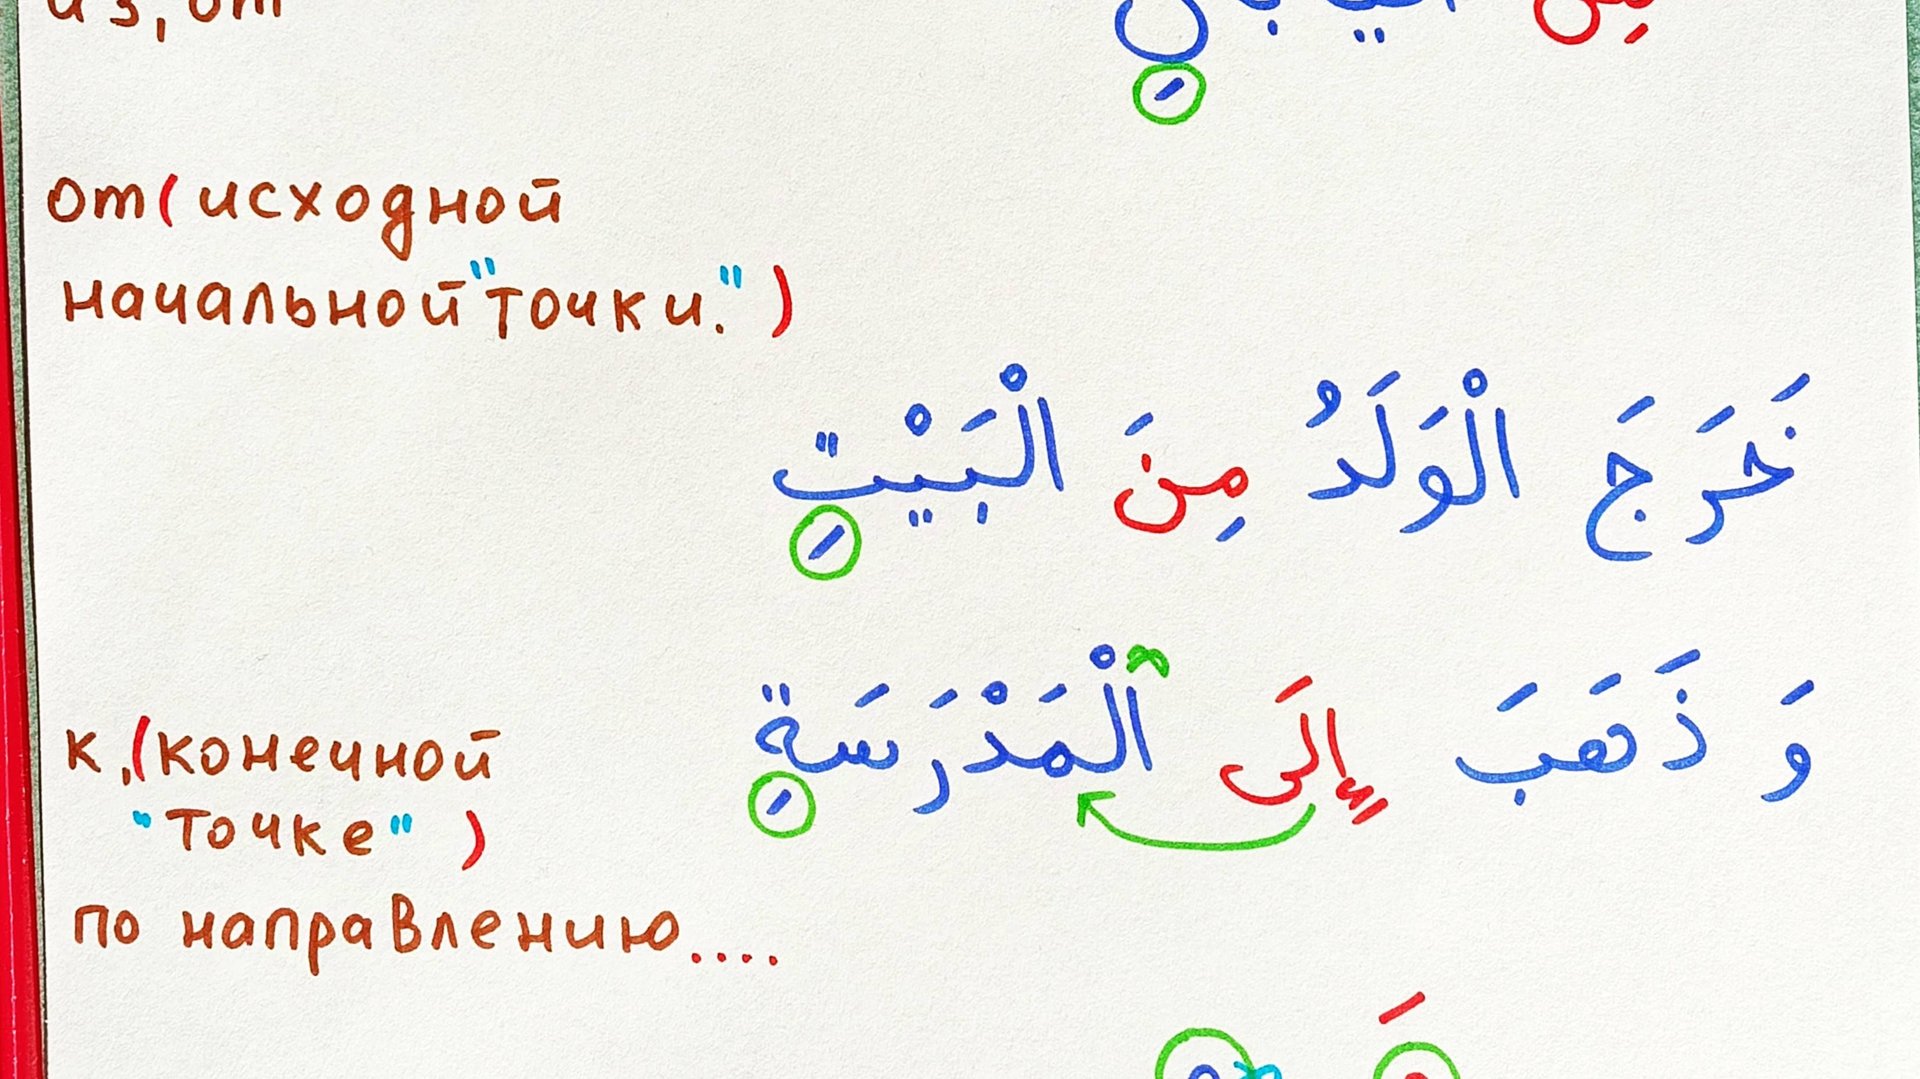 из, от
от (исходной
начальной "точки." )
خَرَجَ الْوَلَدُ مِنَ الْبَيْتِ
وَ ذَهَبَ إِلَى الْمَدْرَسَةِ
к, (конечной
"точке" )
по направлению....